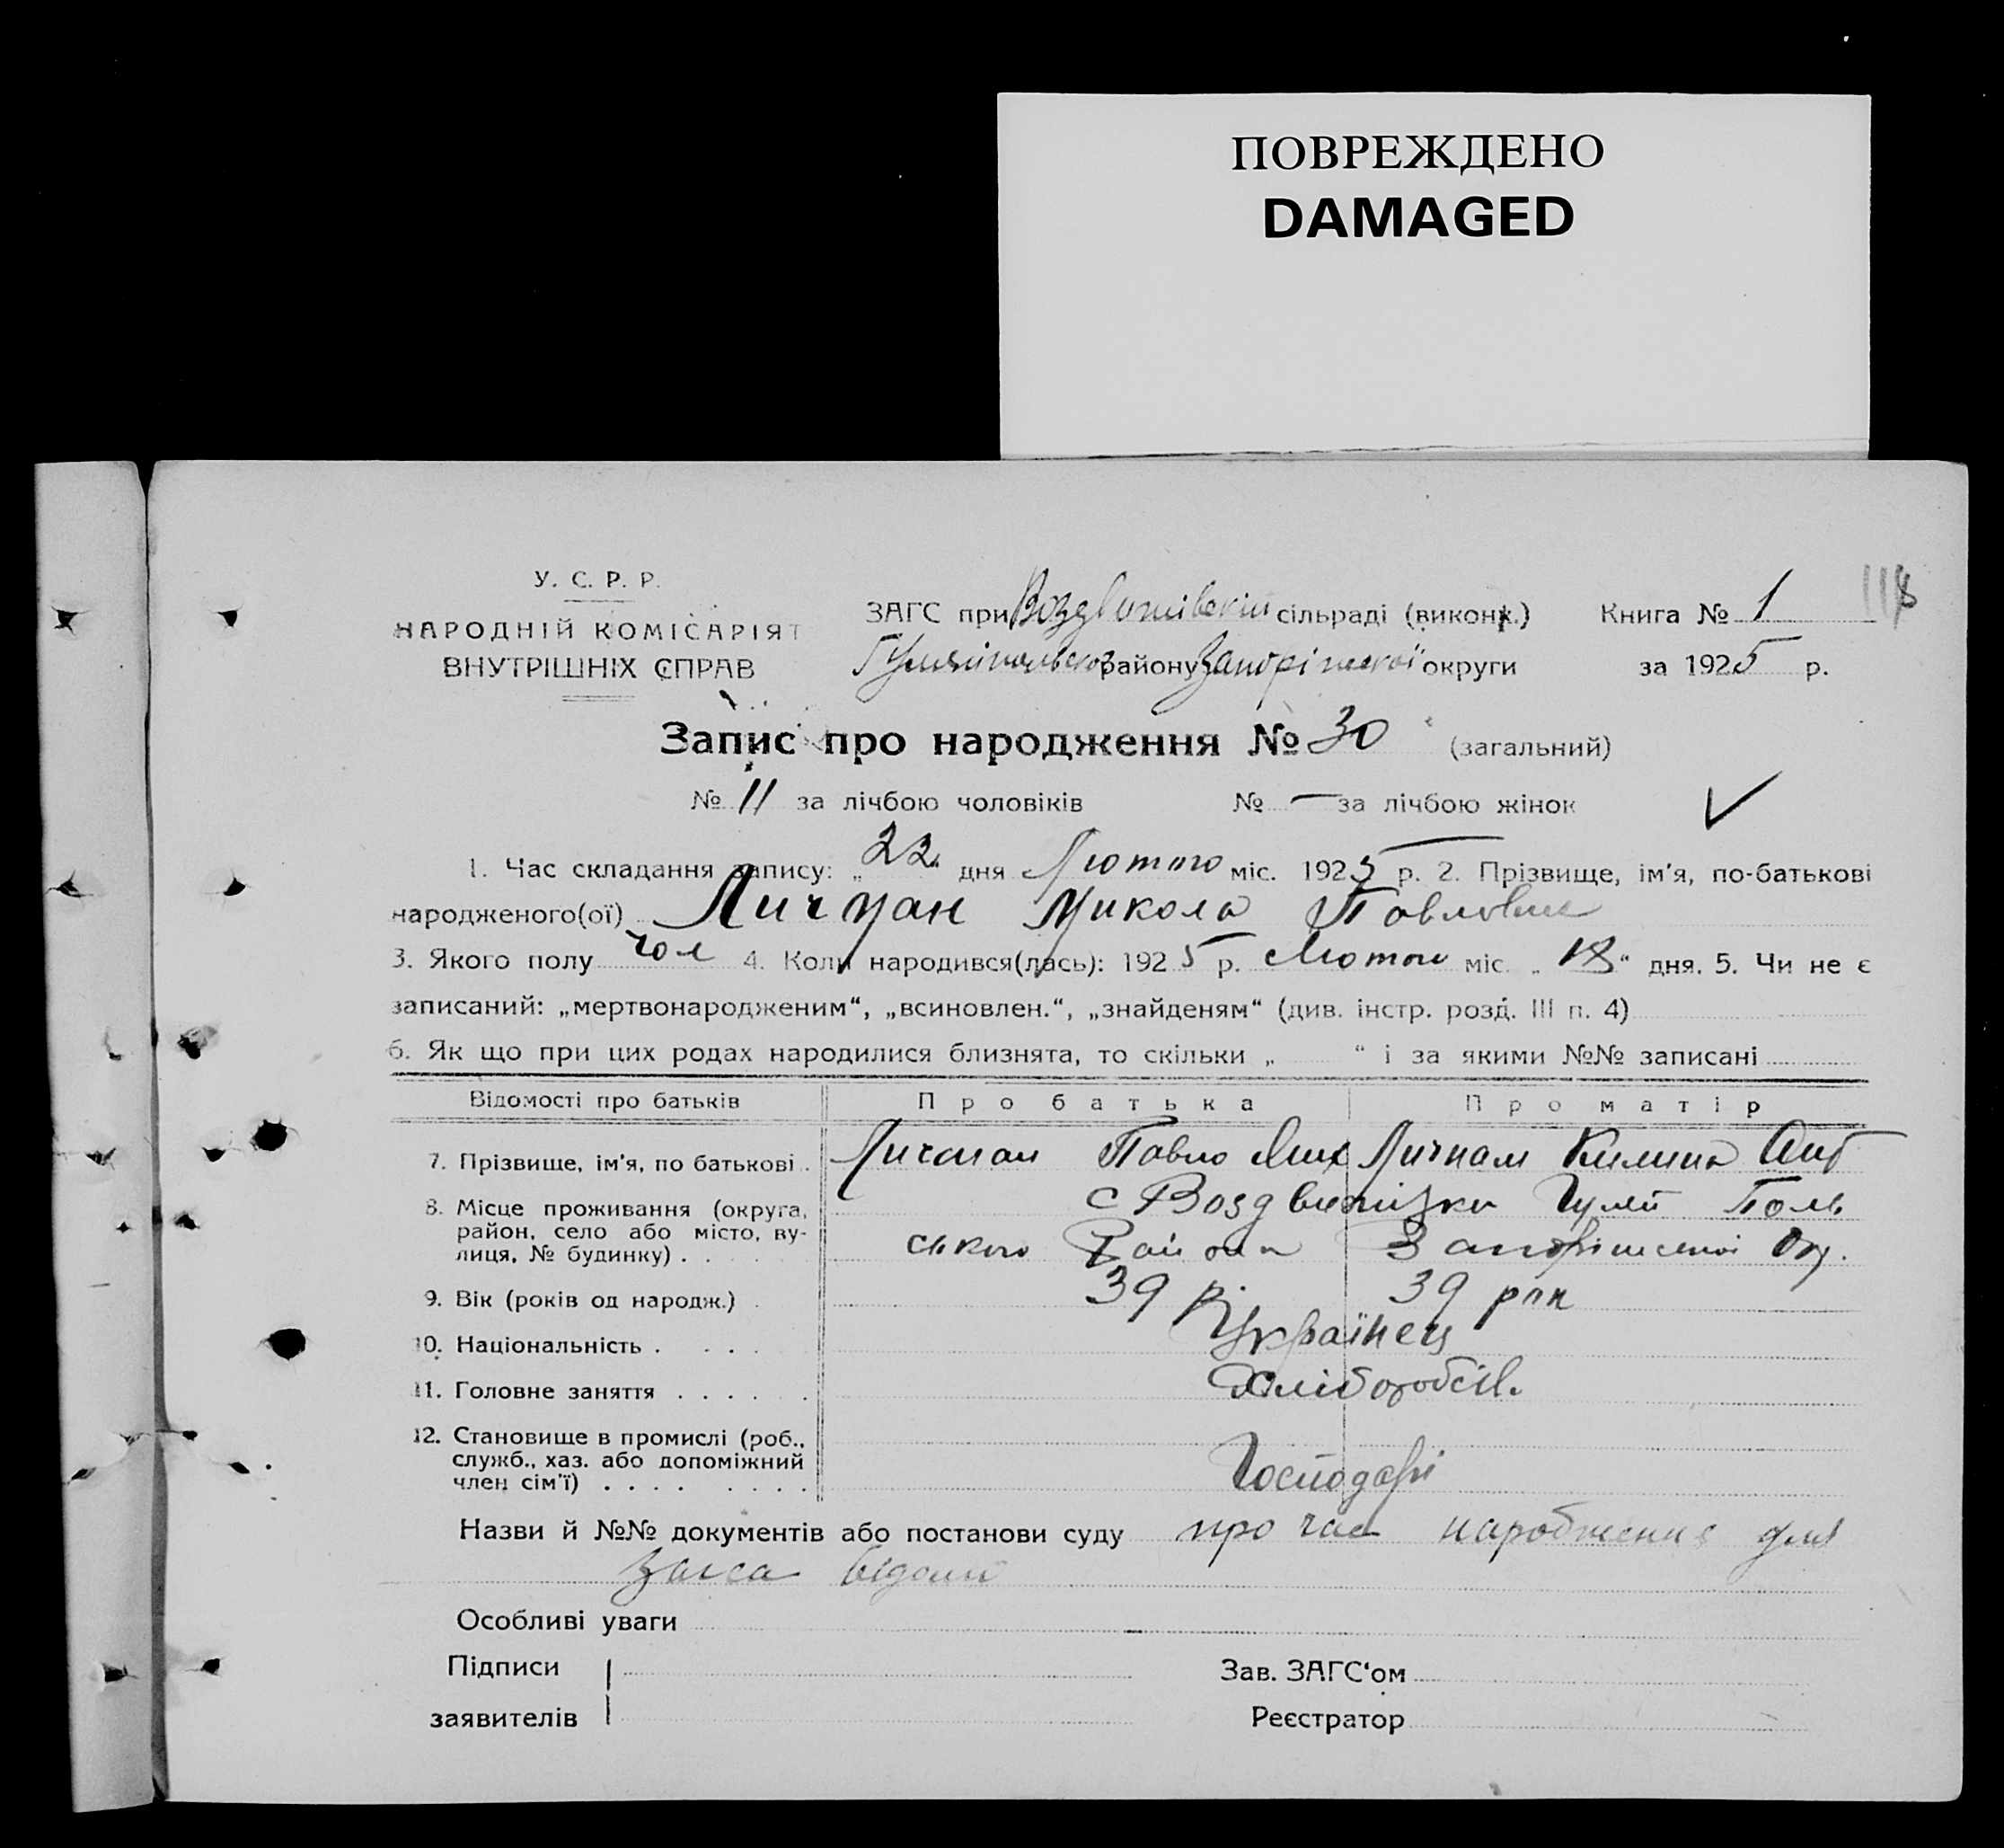 ПОВРЕЖДЕНО
DAMAGED
У. С. Р. Р.
НАРОДНІЙ КОМІСАРІЯТ
ВНУТРІШНІХ СПРАВ
ЗАГС при Воздвижівскій сільраді (виконк.)
Книга № 1
118
Гуляйпольского району Запоріжської округи
за 1925 р.
Запис про народження № 30 (загальний)
№ 11 за лічбою чоловіків № — за лічбою жінок
1. Час складання запису: „22“ дня Лютого міс. 1925 р. 2. Прізвище, ім'я, по-батькові
народженого(ої) Личман Микола Павлович
3. Якого полу чол 4. Коли народився(лась): 1925 р. Лютого міс. „18“ дня. 5. Чи не є
записаний: „мертвонародженим“, „всиновлен.“, „знайденям“ (див. інстр. розд. III п. 4)
6. Як що при цих родах народилися близнята, то скільки „ “ і за якими №№ записані
Відомості про батьків Про батька Про матір
7. Прізвище, ім'я, по батькові . Личман Павло Мих Личман Килина Ант
8. Місце проживання (округа, район, село або місто, вулиця, № будинку) . с Воздвижізки Гуляй Поль
ського Района Запоріжскої Окр.
9. Вік (років од народж.) . 39 р. 39 рок
10. Національність . . . . Українец
11. Головне заняття . . . . . Хлібороб
12. Становище в промислі (роб.,
служб., хаз. або допоміжний
член сім'ї) . . . . . . . . Господарі
Назви й №№ документів або постанови суду про час народження для
загса відомі
Особливі уваги —
Підписи
заявителів
Зав. ЗАГС‘ом
Реєстратор